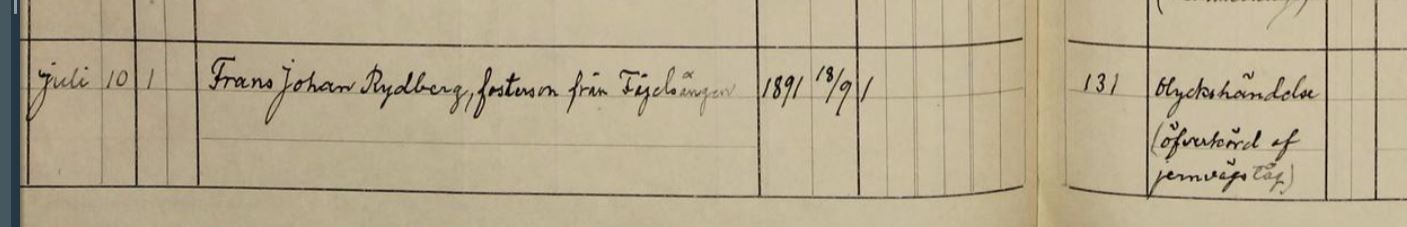 juli 10 1 Frans Johan Rydberg, fosterson från Fågelsången 1891 18/9 1 131 Olyckshändelse
(öfverkörd af
jernvägståg)